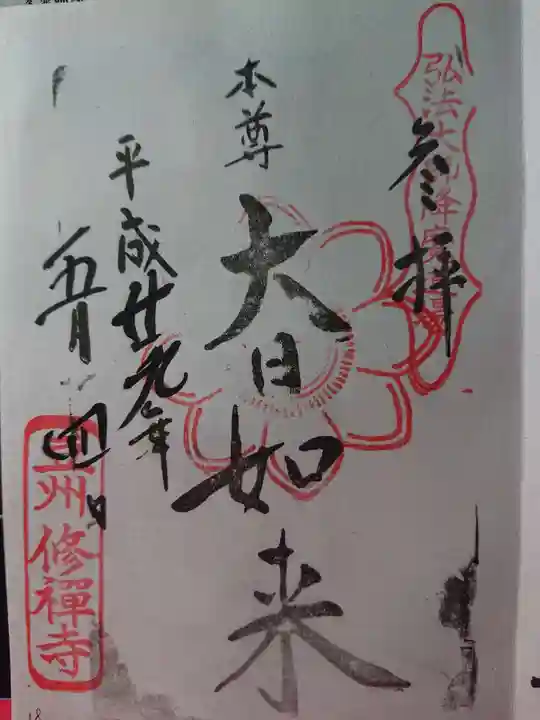 弘法大師降
参拝
本尊
大日如来
平成廿九年
五月四日
豆州修禪寺
18